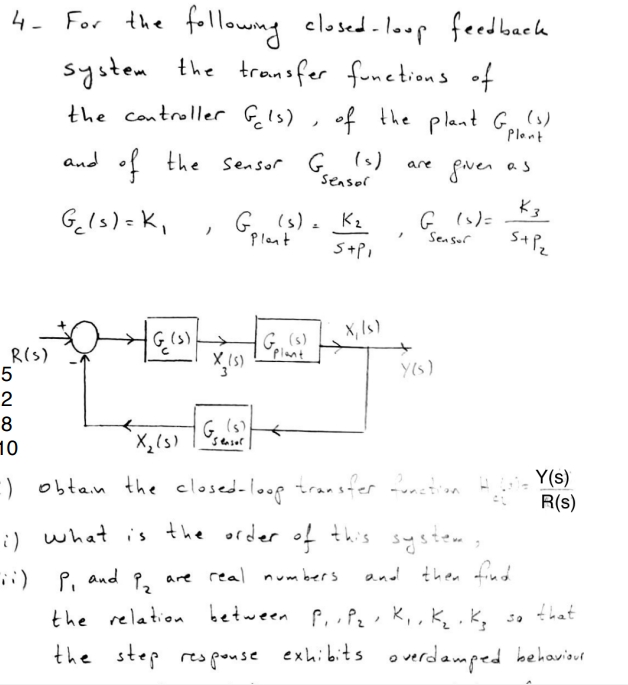 4- For the following closed-loop feedback
system the transfer functions of
the controller Gc(s) , of the plant Gplant(s)
and of the sensor Gsensor(s) are given as
Gc(s) = K1 , Gplant(s) = K2/(s+P1) , Gsensor(s) = K3/(s+P2)
+ Gc(s) Gplant(s) X1(s)
R(s) - X3(s) Y(s)
5
2
8
10
X2(s) Gsensor(s)
) obtain the closed-loop transfer function Hcl(s) = Y(s)/R(s)
i) what is the order of this system,
ii) P1 and P2 are real numbers and then find
the relation between P1, P2, K1, K2, K3 so that
the step response exhibits overdamped behaviour